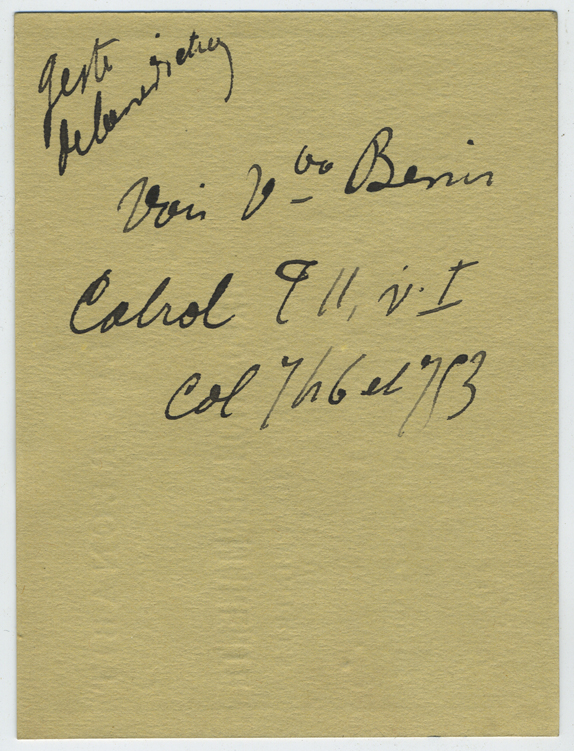 geste
de benediction
Voir Vo Benir
Cabrol T II, v. I
Col 746 et 753